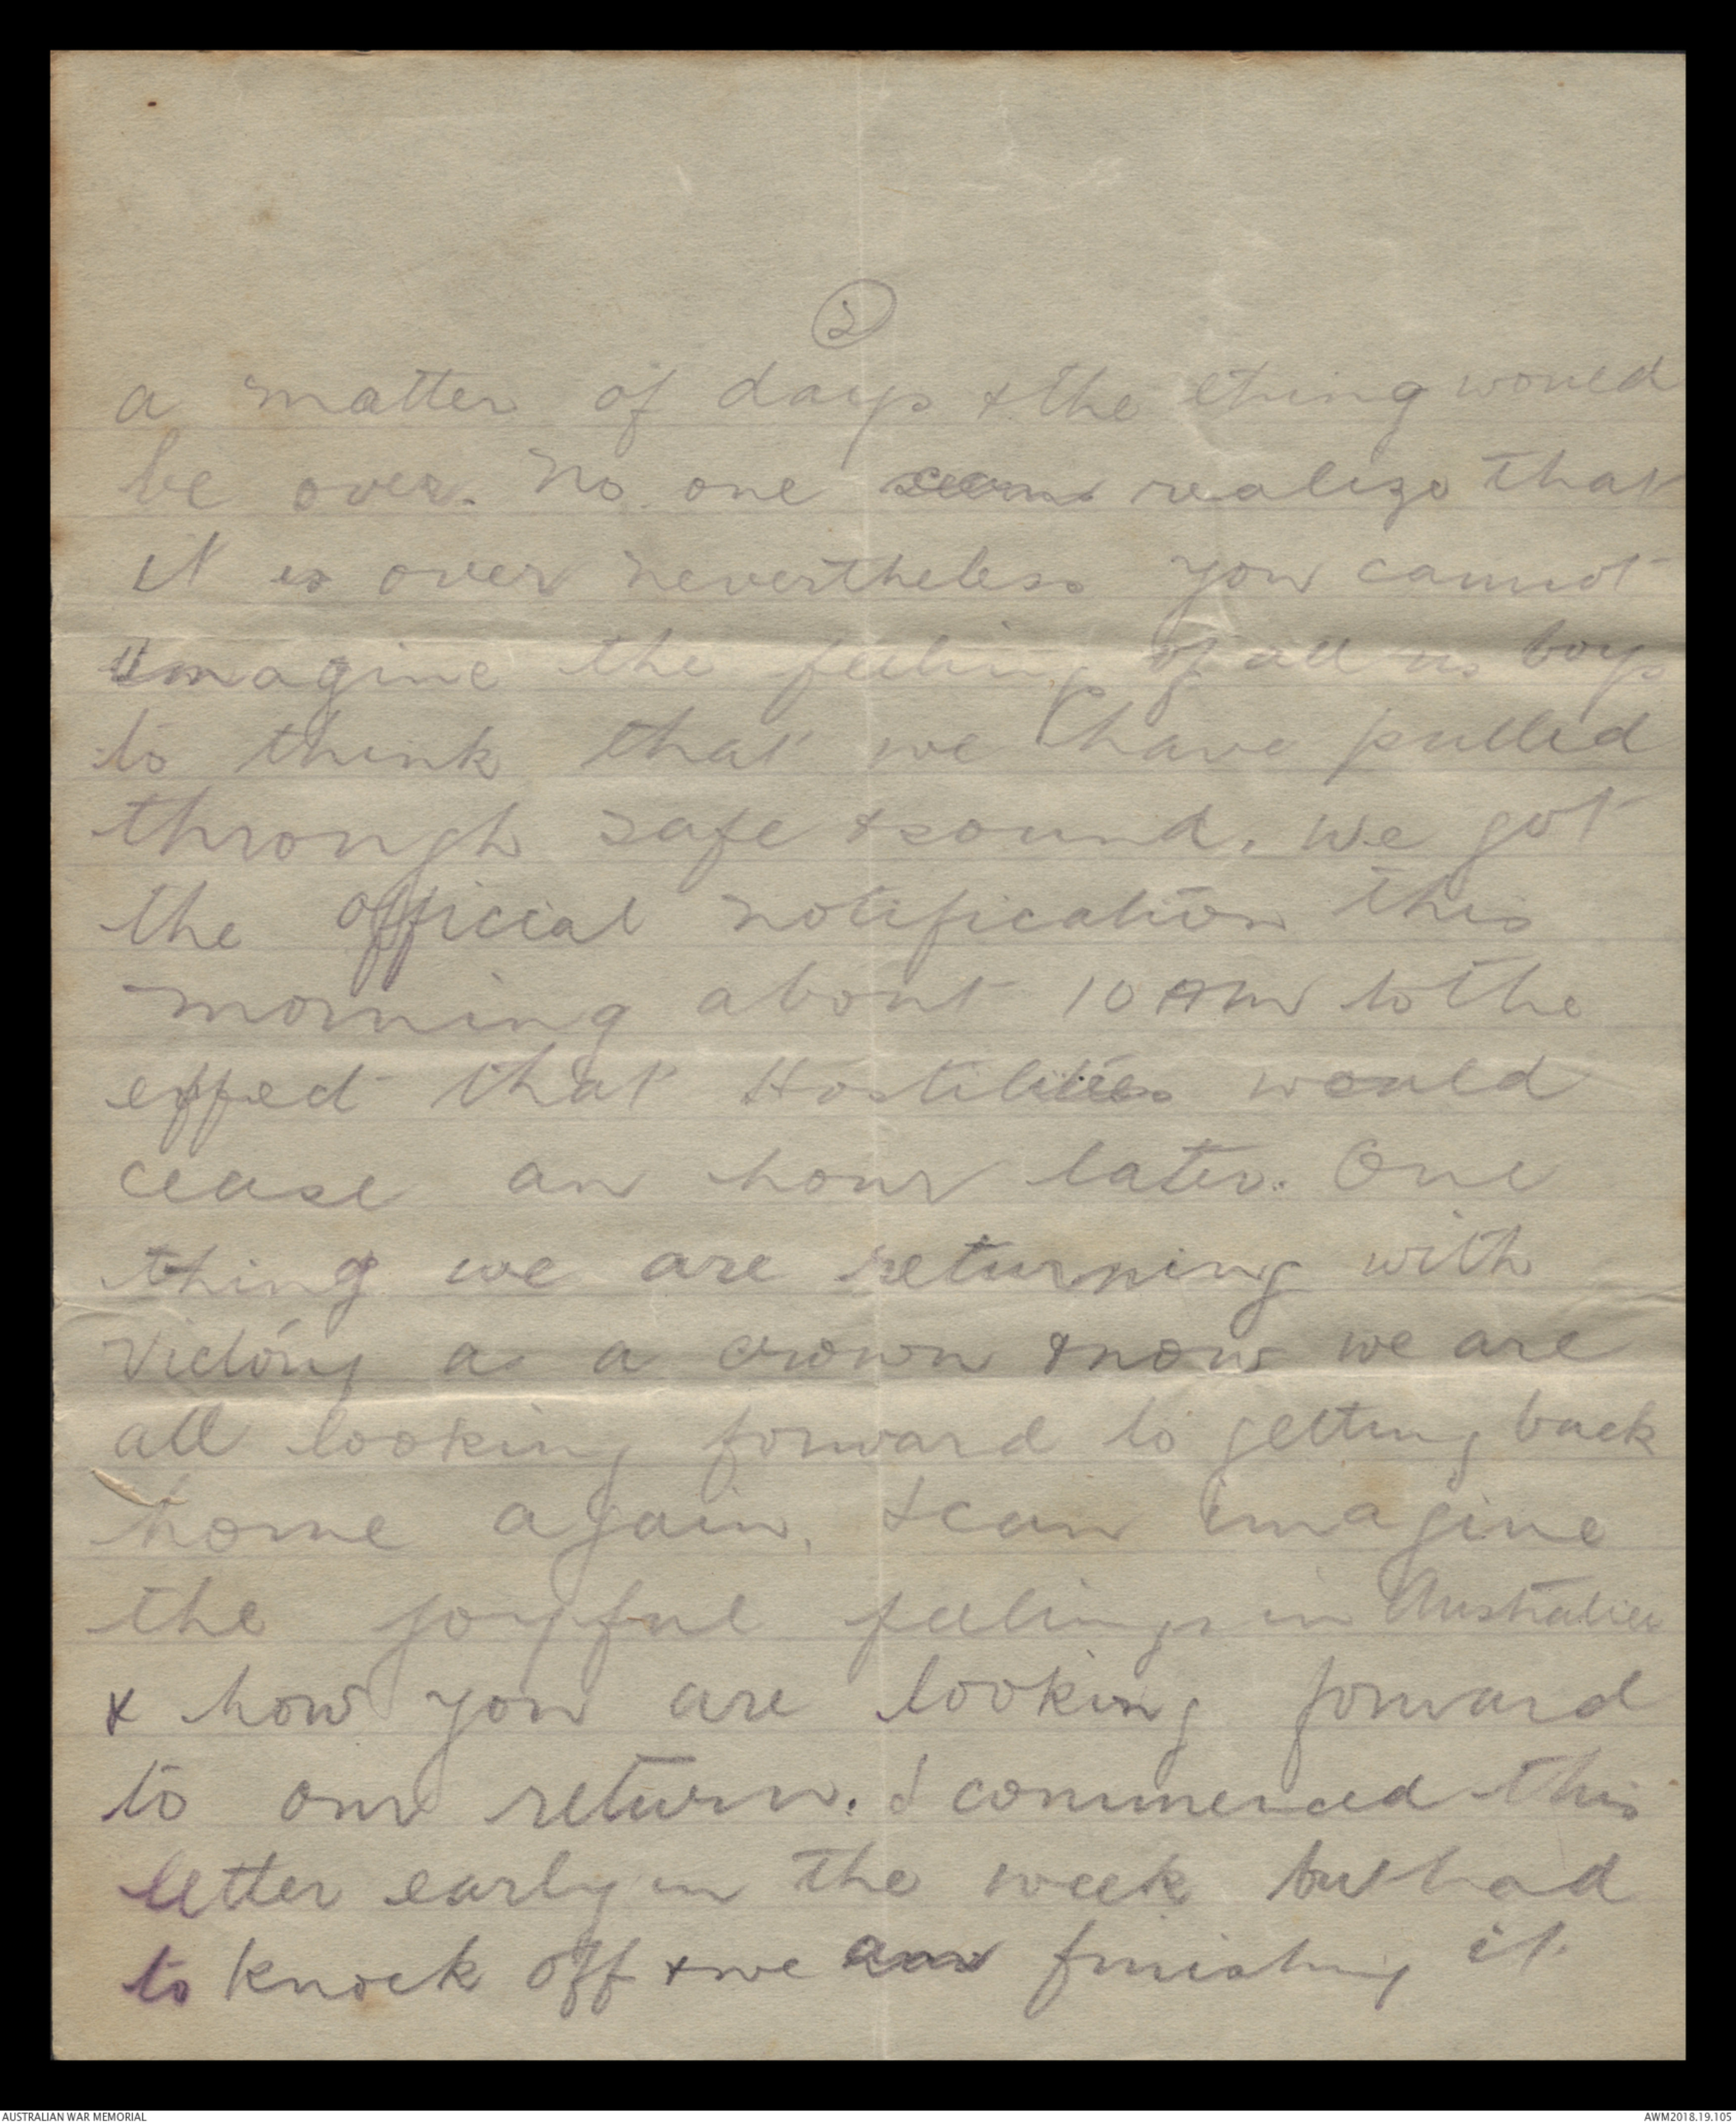 2
a matter of days & the thing would
be over. No one seems realize that
it is over nevertheless you cannot
imagine the feeling of all us boys
to think that we have pulled
through safe & sound. We got
the official notification this
morning about 10 AM to the
effect that Hostilities would
cease an hour later. One
thing we are returning with
Victory as a crown & now we are
all looking forward to getting back
home again. I can imagine
the joyful feelings in Australia
& how you are looking forward
to our return. I commenced this
letter early in the week but had
to knock off & we am finishing it
AUSTRALIAN WAR MEMORIAL
AWM2018.19.105